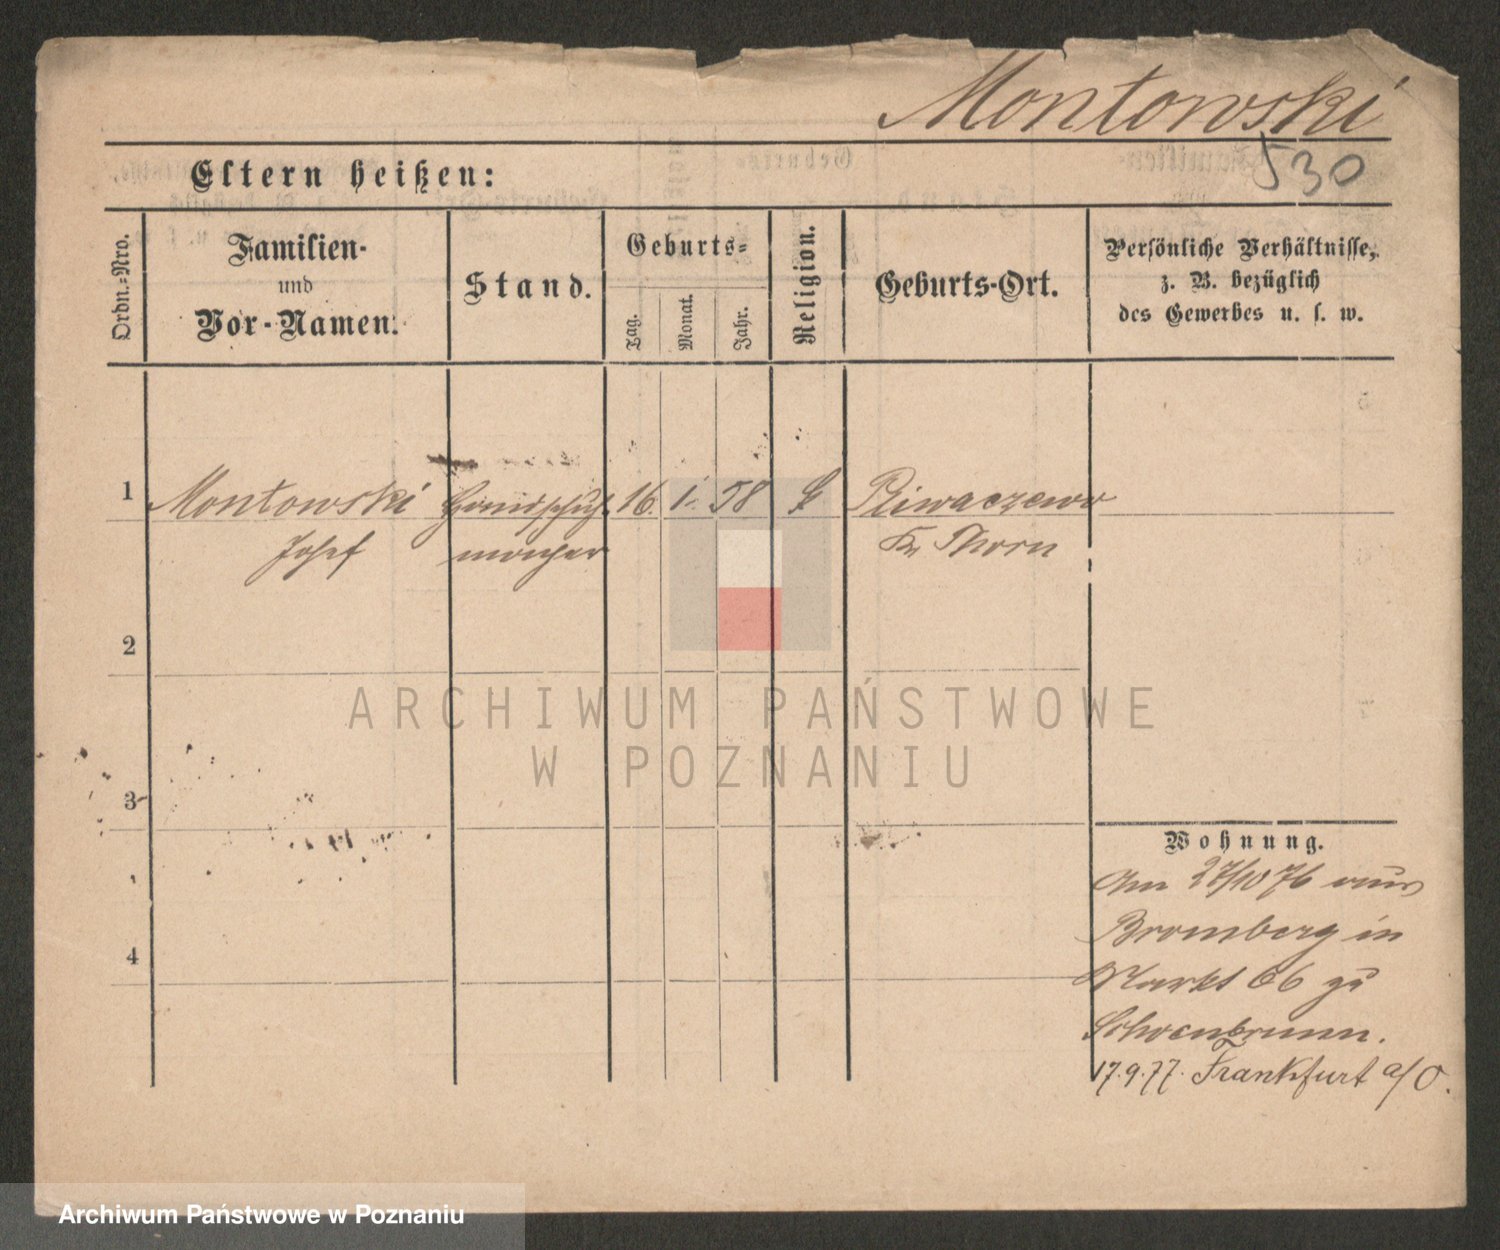 Montowski
530
Eltern heißen:
Ordn.-Nro.
Familien-
und
Vor-Namen.
Stand.
Geburts-
Tag.
Monat.
Jahr.
Religion.
Geburts-Ort.
Persönliche Verhältnisse,
z. B. bezüglich
des Gewerbes u. s. w.
1 Montowski Handschuh- 16. 1. 58 Pliwaczewo
Josef macher Kr. Thorn
2
ARCHIWUM PAŃSTWOWE
W POZNANIU
3
Wohnung.
Am 27/10 76 aus
Bromberg in
4
Markt 66 zu
Schoenbrunn.
17.9.77. Frankfurt a/O.
Archiwum Państwowe w Poznaniu